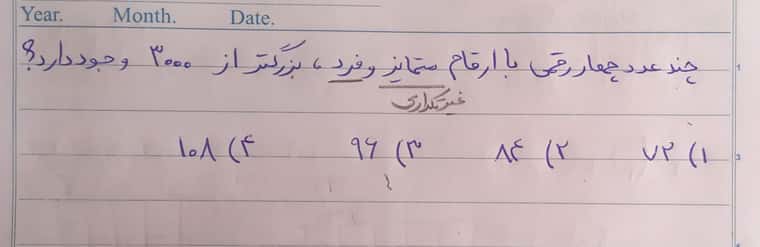 Year. Month. Date.
چند عدد چهار رقمی با ارقام متمایز و فرد، بزرگتر از ۳۰۰۰ وجود دارد؟
غیرتکراری
۱) ۷۲ ۲) ۸۴ ۳) ۹۶ ۴) ۱۰۸